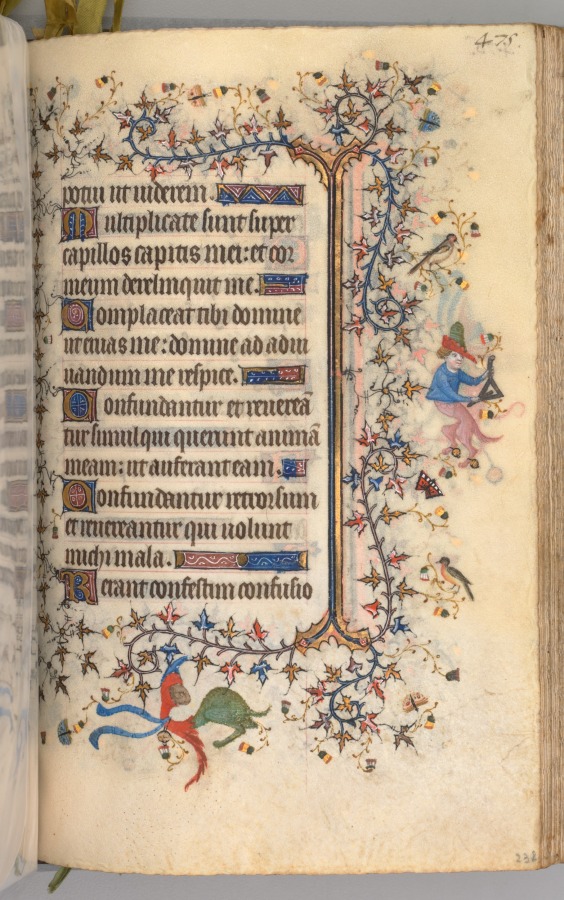 475.
potui ut uiderem.
Multiplicate sunt super
capillos capitis mei: et cor
meum dereliquit me.
Complaceat tibi domine
ut eruas me: domine ad adiu
uandum me respice.
Confundantur et reuereã
tur simul qui querunt animã
meam: ut auferant eam.
Confundantur retrorsum
et reuereantur qui uolunt
michi mala.
Ferant confestim confusio
238